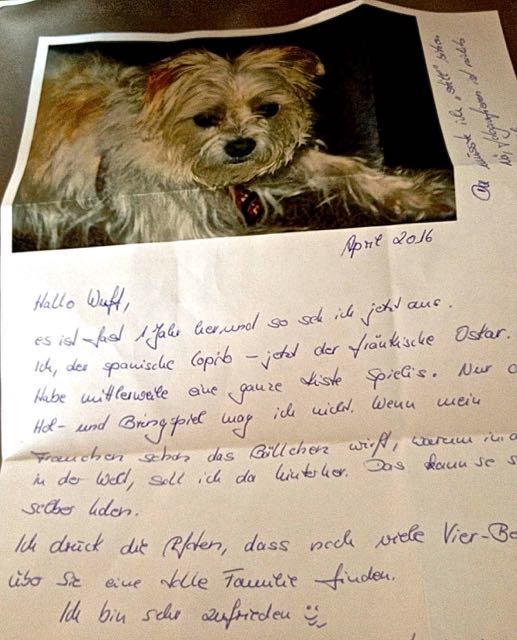 Da müsste ich "still" sitzen
April 2016
Hallo Wuff,
es ist fast 1 Jahr her und so seh ich jetzt aus.
Ich, der spanische Copito - jetzt der fränkische Oskar.
Habe mittlerweile eine ganze Kiste Spielis. Nur d
Hol- und Bringspiel mag ich nicht. Wenn mein
Frauchen schon das Bällchen wirft, warum in a
in der Welt, soll ich da hinterher. Das kann se s
selber holen.
Ich drück die Pfoten, dass noch viele Vier-Be
über Sie eine tolle Familie finden.
Ich bin sehr zufrieden